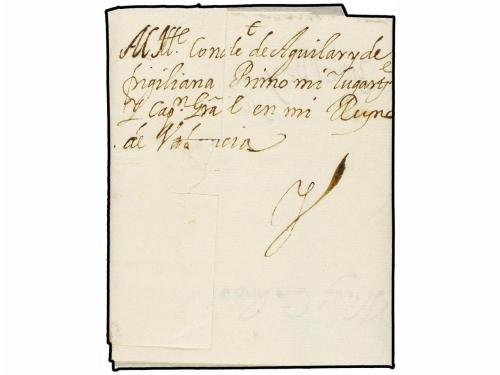 Al Ille. Conde de Aguilar y de
frigiliana Primo mi lugarte
y Capn. Gral en mi Reyno
de Valencia